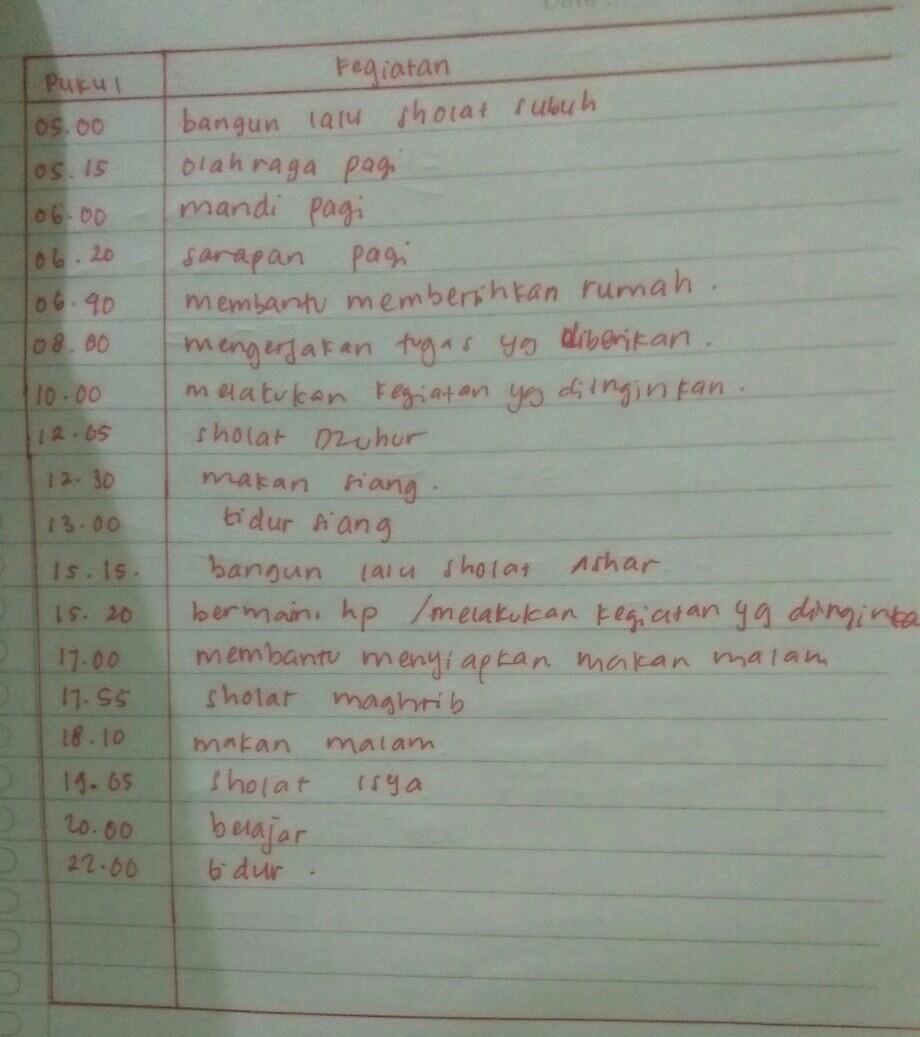 Pukul Kegiatan
05.00 bangun lalu sholat subuh
05.15 olahraga pagi
06.00 mandi pagi
06.20 sarapan pagi
06.40 membantu membersihkan rumah.
08.00 mengerjakan tugas yg diberikan.
10.00 melakukan kegiatan yg diinginkan.
12.05 sholat Dzuhur
12.30 makan siang.
13.00 tidur siang
15.15. bangun lalu sholat Ashar
15.20 bermain hp /melakukan kegiatan yg diinginka
17.00 membantu menyiapkan makan malam
17.55 sholat maghrib
18.10 makan malam
19.05 sholat isya
20.00 belajar
22.00 tidur.